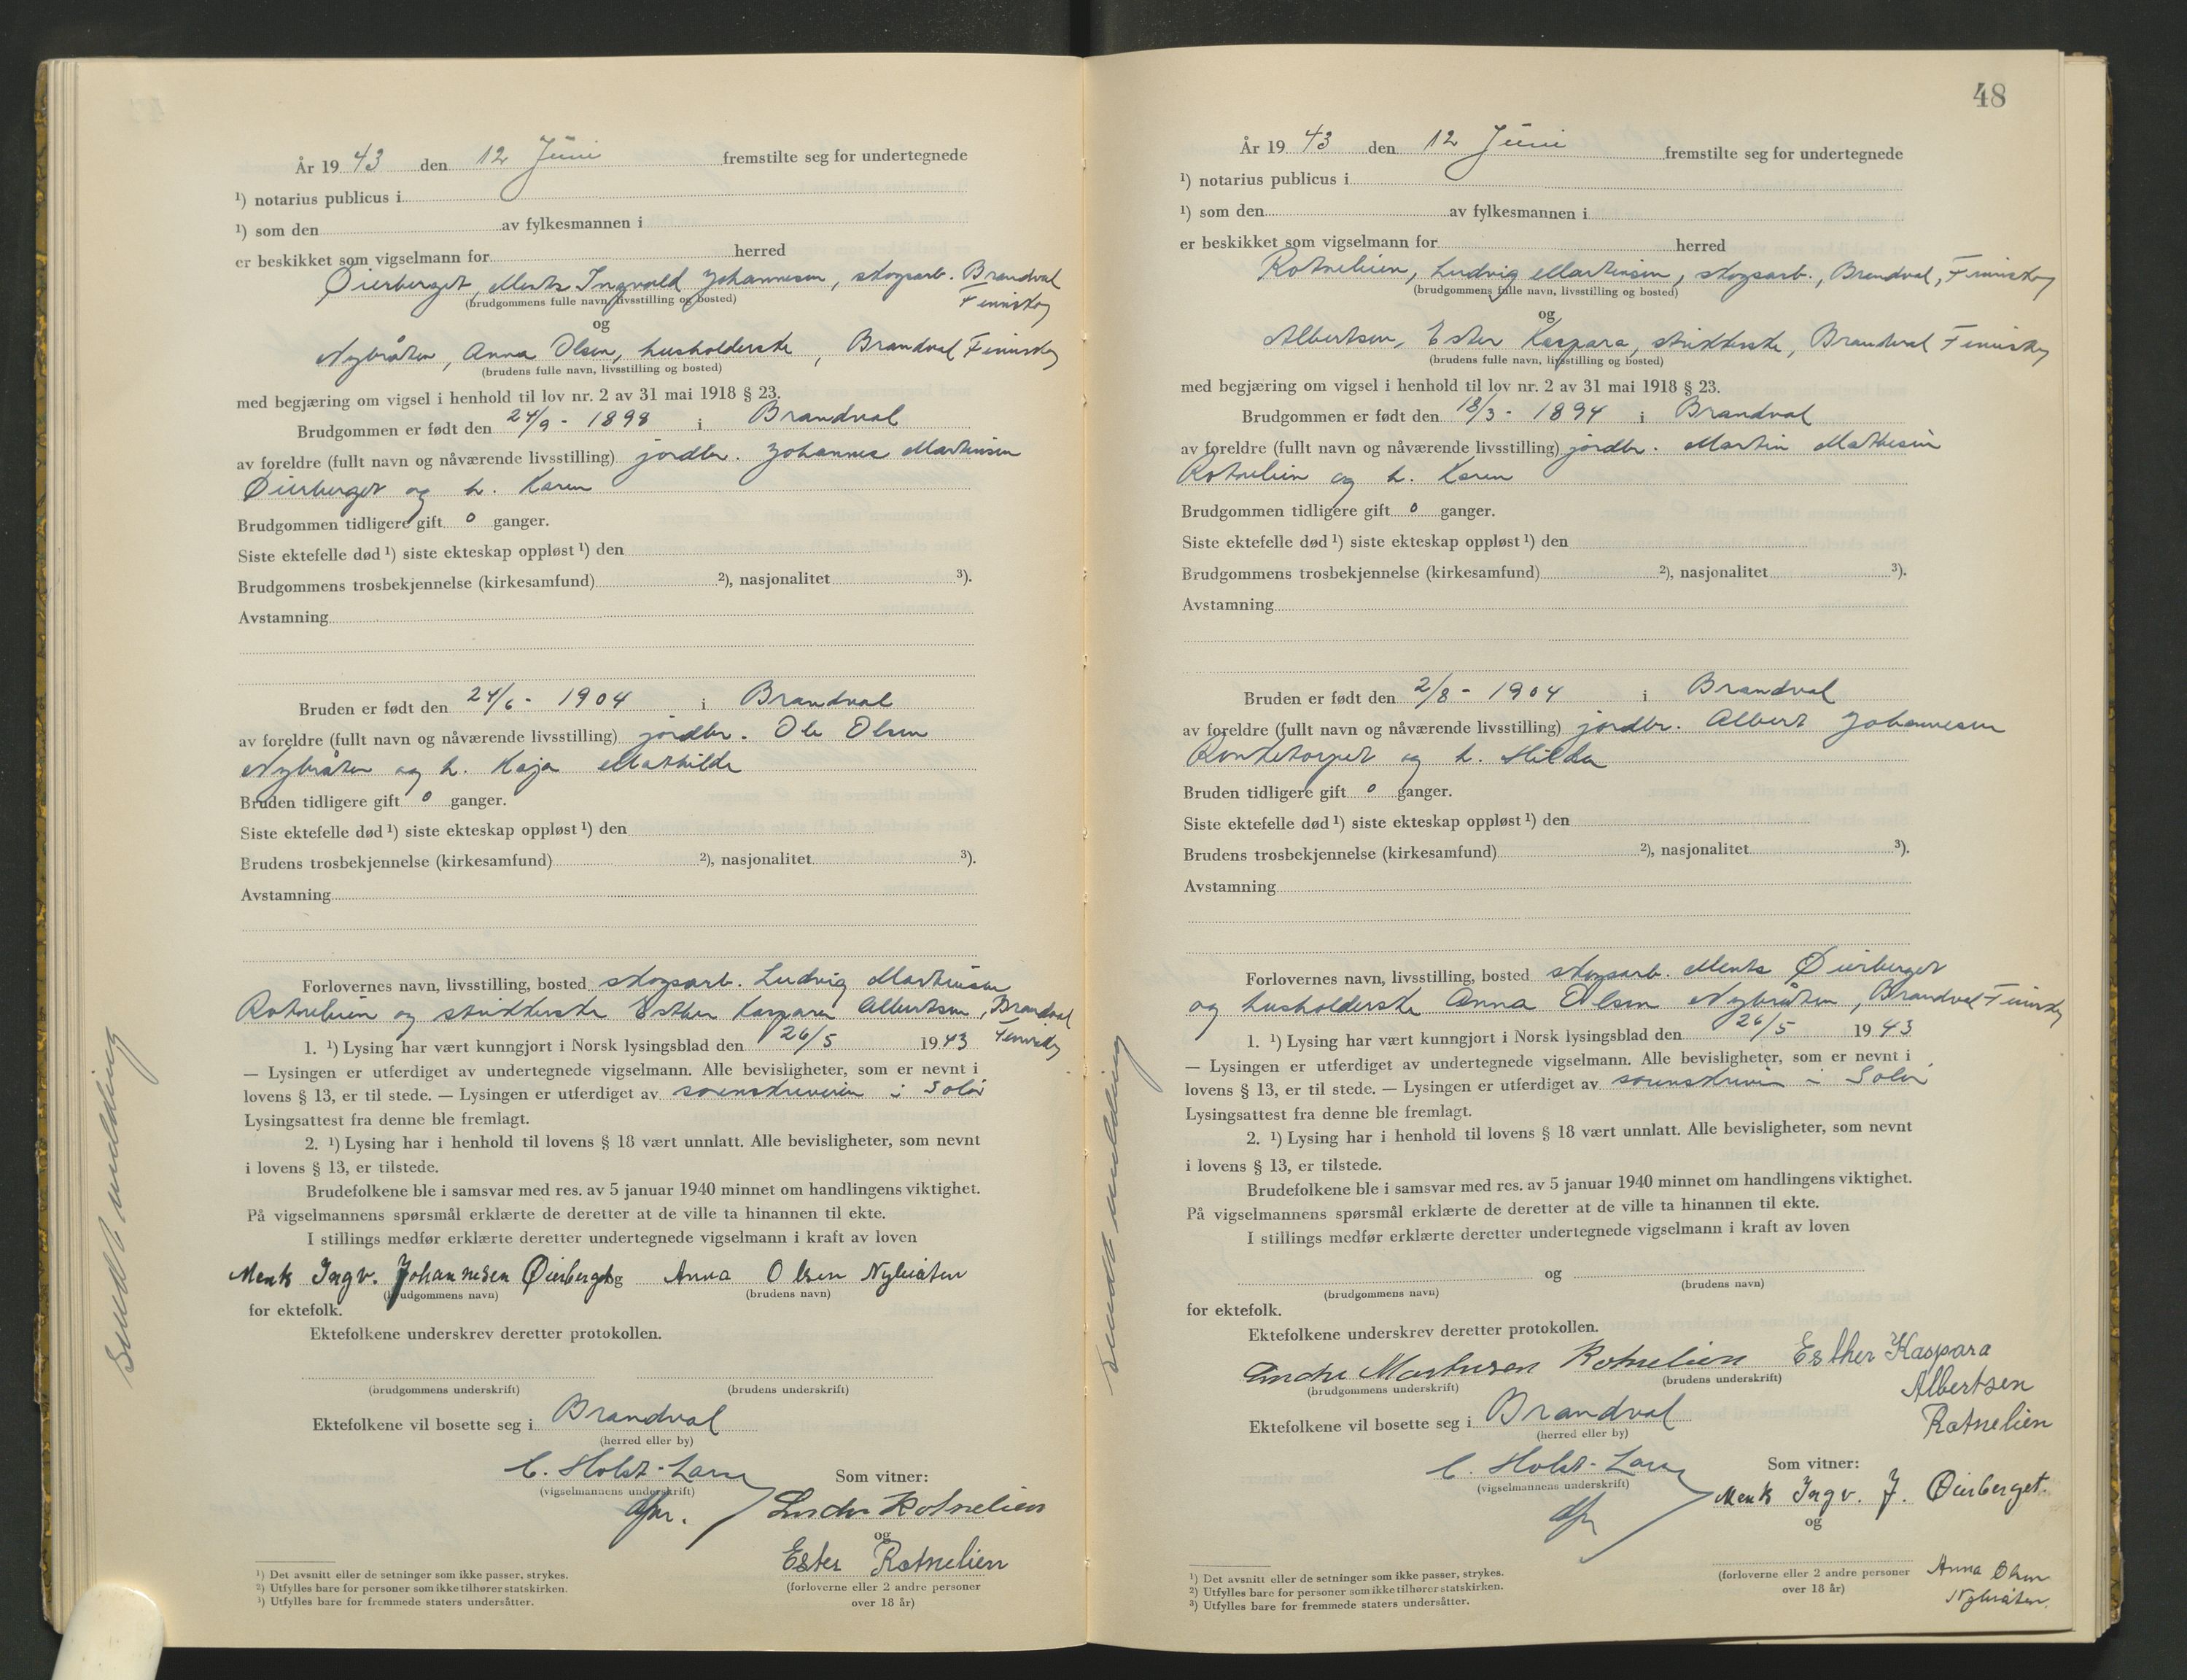 År 19 43 den 12 Juni fremstilte seg for undertegnede
¹) notarius publicus i
¹) som den av fylkesmannen i
er beskikket som vigselmann for herred
Øierberget, Ments Ingvald Johannesen, skogsarb. Brandval
Finnskog
(brudgommens fulle navn, livsstilling og bosted)
og
Nybråten, Anna Olsen, husholderske, Brandval Finnskog
(brudens fulle navn, livsstilling og bosted)
med begjæring om vigsel i henhold til lov nr. 2 av 31 mai 1918 § 23.
Brudgommen er født den 24/9 - 1898 i Brandval
av foreldre (fullt navn og nåværende livsstilling) jordbr. Johannes Martinsen
Øierberget og h. Karen
Brudgommen tidligere gift 0 ganger.
Siste ektefelle død ¹) siste ekteskap oppløst ¹) den
Brudgommens trosbekjennelse (kirkesamfund) ²), nasjonalitet ³).
Avstamning
Bruden er født den 24/6 - 1904 i Brandval
av foreldre (fullt navn og nåværende livsstilling) jordbr. Ole Olsen
Nybråten og h. Kaja Mathilde
Bruden tidligere gift 0 ganger.
Siste ektefelle død ¹) siste ekteskap oppløst ¹) den
Brudens trosbekjennelse (kirkesamfund) ²), nasjonalitet ³).
Avstamning
Forlovernes navn, livsstilling, bosted skogsarb. Ludvig Martinsen
Rotnelien og strikkerske Esther Kaspara Albertsen, Brandval
Finnskog
1. ¹) Lysing har vært kunngjort i Norsk lysingsblad den 26/5 1943
— Lysingen er utferdiget av undertegnede vigselmann. Alle bevisligheter, som er nevnt i
lovens § 13, er til stede. — Lysingen er utferdiget av sorenskriveren i Solør
Lysingsattest fra denne ble fremlagt.
2. ¹) Lysing har i henhold til lovens § 18 vært unnlatt. Alle bevisligheter, som nevnt
i lovens § 13, er tilstede.
Brudefolkene ble i samsvar med res. av 5 januar 1940 minnet om handlingens viktighet.
På vigselmannens spørsmål erklærte de deretter at de ville ta hinannen til ekte.
I stillings medfør erklærte deretter undertegnede vigselmann i kraft av loven
Ments Ingv. Johannesen Øierberget og Anna Olsen Nybråten
(brudgommens navn) (brudens navn)
for ektefolk.
Ektefolkene underskrev deretter protokollen.
(brudgommens underskrift) (brudens underskrift)
Ektefolkene vil bosette seg i Brandval
(herred eller by)
C. Holst-Larsen
Som vitner:
(vigselmannens underskrift)
Ludv Rotnelien
og
Ester Rotnelien
(forloverne eller 2 andre personer
over 18 år)
¹) Det avsnitt eller de setninger som ikke passer, strykes.
²) Utfylles bare for personer som ikke tilhører statskirken.
³) Utfylles bare for fremmede staters undersåtter.
Sendt melding
48
År 19 43 den 12 Juni fremstilte seg for undertegnede
¹) notarius publicus i
¹) som den av fylkesmannen i
er beskikket som vigselmann for herred
Rotnelien, Ludvig Martinsen, skogsarb., Brandval, Finnskog
(brudgommens fulle navn, livsstilling og bosted)
og
Albertsen, Ester Kaspara, strikkerske, Brandval Finnskog
(brudens fulle navn, livsstilling og bosted)
med begjæring om vigsel i henhold til lov nr. 2 av 31 mai 1918 § 23.
Brudgommen er født den 18/3 - 1894 i Brandval
av foreldre (fullt navn og nåværende livsstilling) jordbr. Martin Mathisen
Rotnelien og h. Karen
Brudgommen tidligere gift 0 ganger.
Siste ektefelle død ¹) siste ekteskap oppløst ¹) den
Brudgommens trosbekjennelse (kirkesamfund) ²), nasjonalitet ³).
Avstamning
Bruden er født den 2/8 - 1904 i Brandval
av foreldre (fullt navn og nåværende livsstilling) jordbr. Albert Johannesen
og h. Hilda
Bruden tidligere gift 0 ganger.
Siste ektefelle død ¹) siste ekteskap oppløst ¹) den
Brudens trosbekjennelse (kirkesamfund) ²), nasjonalitet ³).
Avstamning
Forlovernes navn, livsstilling, bosted skogsarb. Ments Øierberget
og husholderske Anna Olsen Nybråten, Brandval Finnskog
1. ¹) Lysing har vært kunngjort i Norsk lysingsblad den 26/5 1943
— Lysingen er utferdiget av undertegnede vigselmann. Alle bevisligheter, som er nevnt i
lovens § 13, er til stede. — Lysingen er utferdiget av sorenskriveren i Solør
Lysingsattest fra denne ble fremlagt.
2. ¹) Lysing har i henhold til lovens § 18 vært unnlatt. Alle bevisligheter, som nevnt
i lovens § 13, er tilstede.
Brudefolkene ble i samsvar med res. av 5 januar 1940 minnet om handlingens viktighet.
På vigselmannens spørsmål erklærte de deretter at de ville ta hinannen til ekte.
I stillings medfør erklærte deretter undertegnede vigselmann i kraft av loven
og
(brudgommens navn) (brudens navn)
for ektefolk.
Ektefolkene underskrev deretter protokollen.
Martinsen Rotnelien Esther Kaspara
(brudgommens underskrift) (brudens underskrift)
Albertsen
Rotnelien
Ektefolkene vil bosette seg i Brandval
(herred eller by)
C. Holst-Larsen
Som vitner:
(vigselmannens underskrift)
Ments Ingv. J. Øierberget.
og
Anna Olsen
Nybråten.
(forloverne eller 2 andre personer
over 18 år)
¹) Det avsnitt eller de setninger som ikke passer, strykes.
²) Utfylles bare for personer som ikke tilhører statskirken.
³) Utfylles bare for fremmede staters undersåtter.
Sendt melding